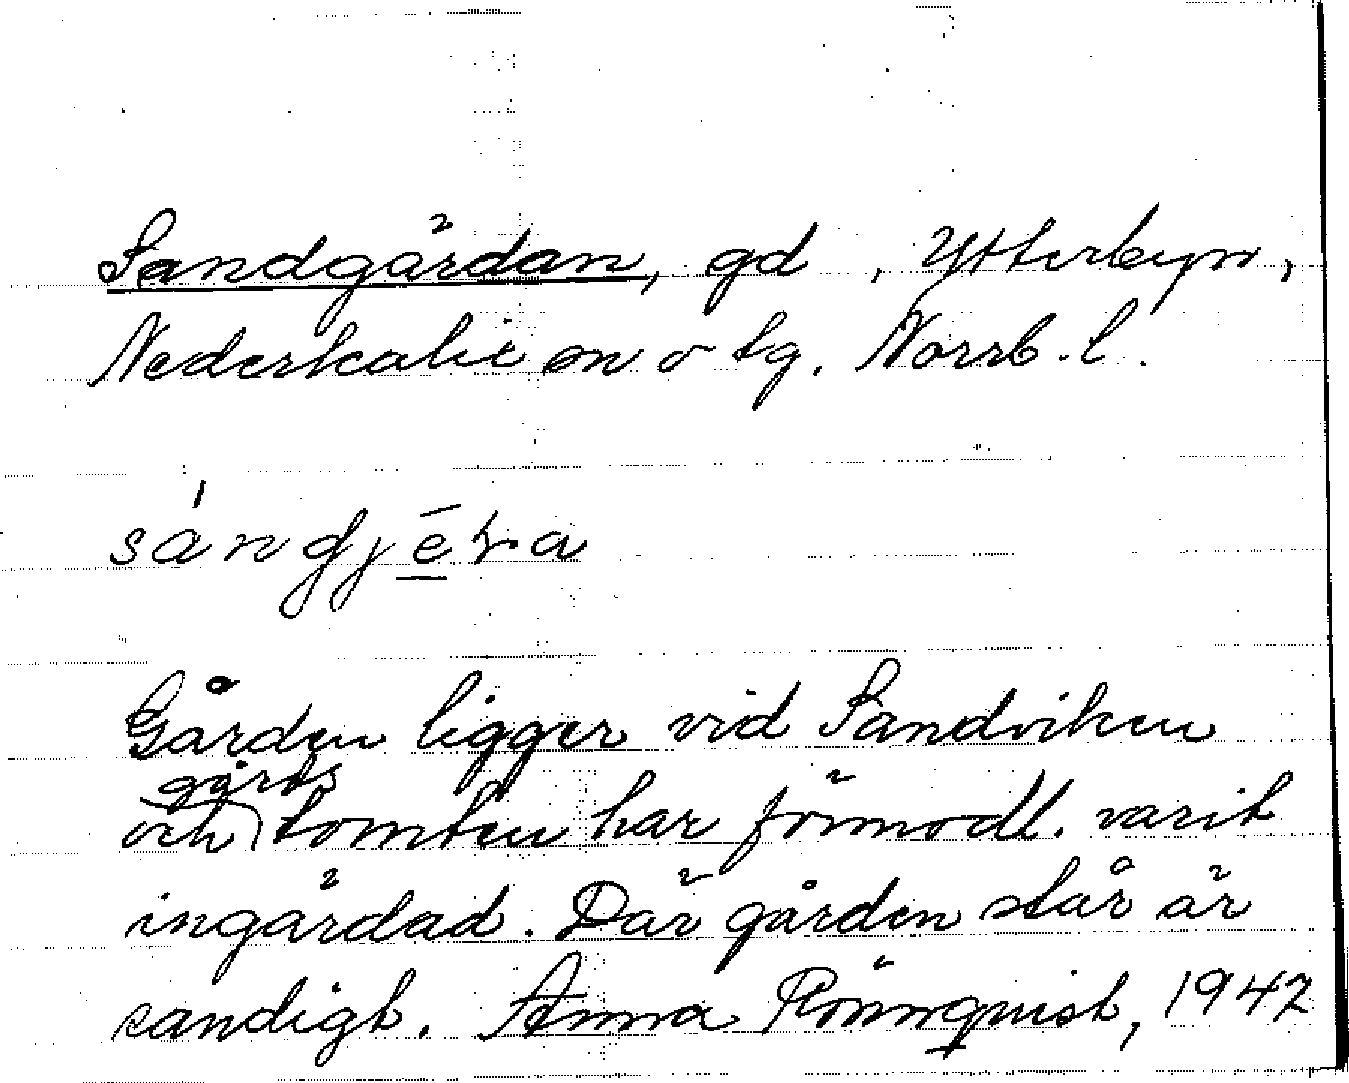 Sandgärdan, gd , Ytterbyn,
Nederkalix sn o tg. Norrb. l.
sándjēra
Gården ligger vid Sandviken
och gårdstomten har förmodl. varit
ingärdad. Där gården står är
sandigt. Anna Rönnquist, 1947